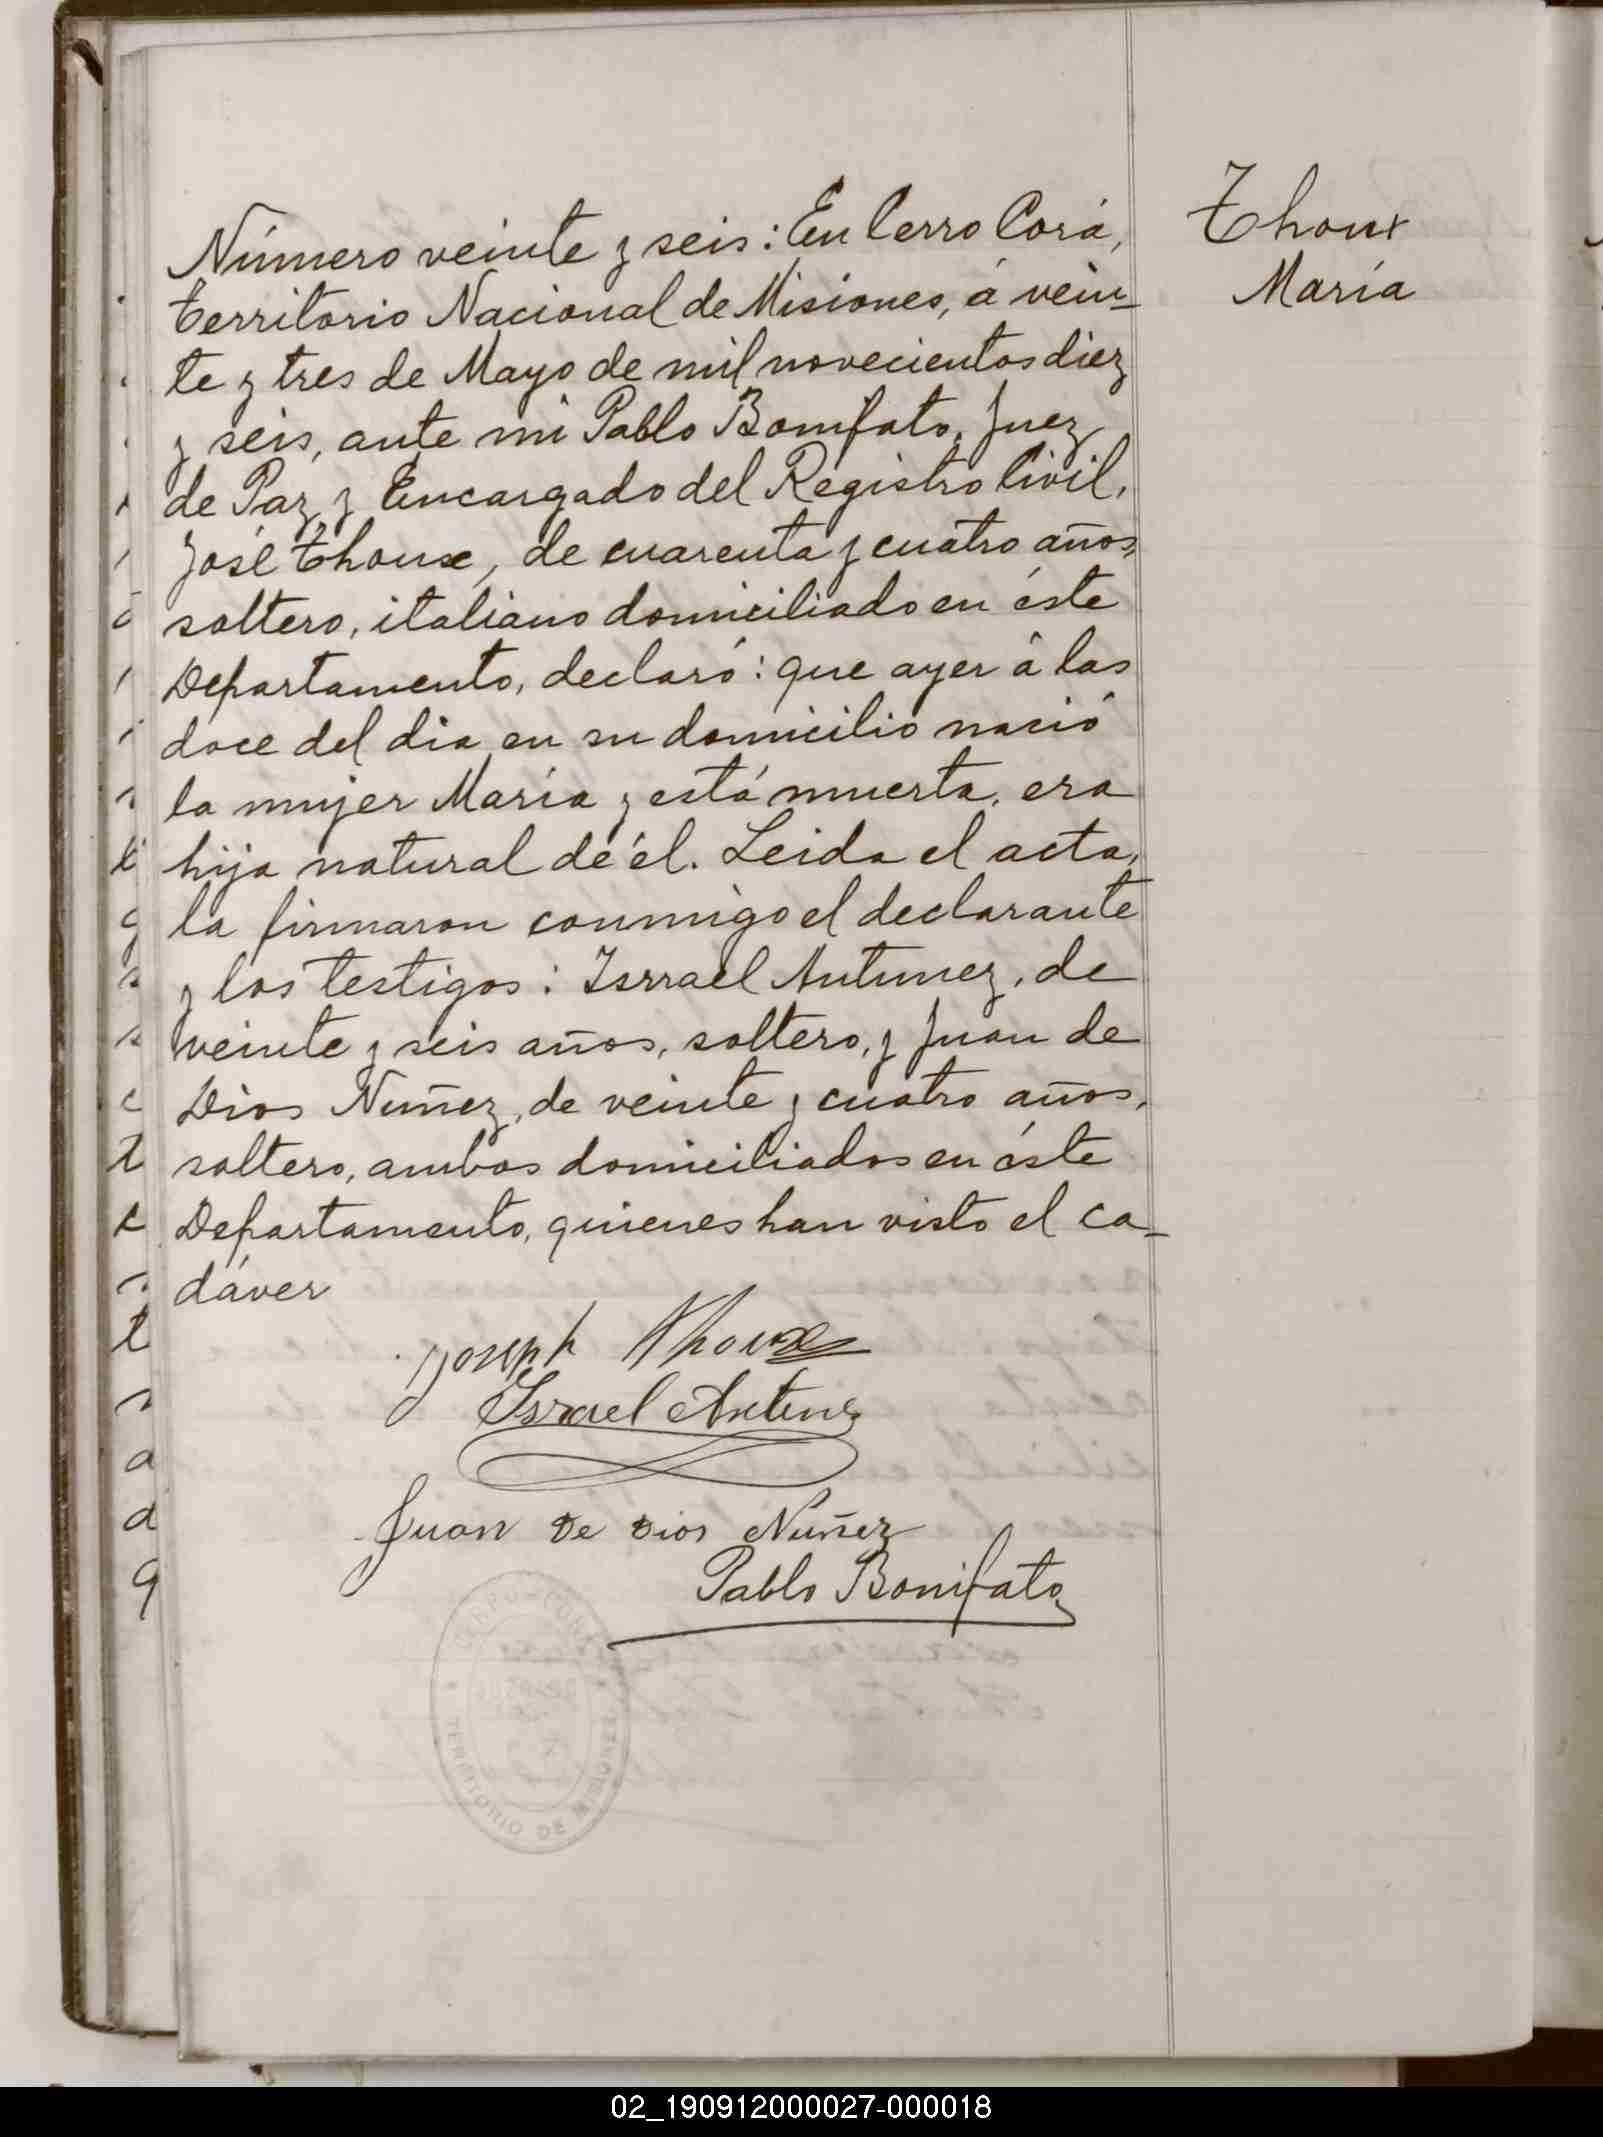 Thoux
María
Número veinte y seis: En Cerro Corá,
territorio Nacional de Misiones, á vein-
te y tres de Mayo de mil novecientos diez
y seis, ante mi Pablo Bonifato, Juez
de Paz y Encargado del Registro Civil,
José Thoux, de cuarenta y cuatro años,
soltero, italiano domiciliado en éste
Departamento, declaró: que ayer á las
doce del dia en su domicilio nació
la mujer María y está muerta, era
hija natural de él. Leida el acta,
la firmaron conmigo el declarante
y los testigos: Isrrael Antunez, de
veinte y seis años, soltero, y Juan de
Dios Nuñez, de veinte y cuatro años,
soltero, ambos domiciliados en éste
Departamento, quienes han visto el ca-
dáver
Joseph Thoux
Israel Antunez
Juan de Dios Nuñez
Pablo Bonifato
TERRITORIO DE MISIONES
02_190912000027-000018